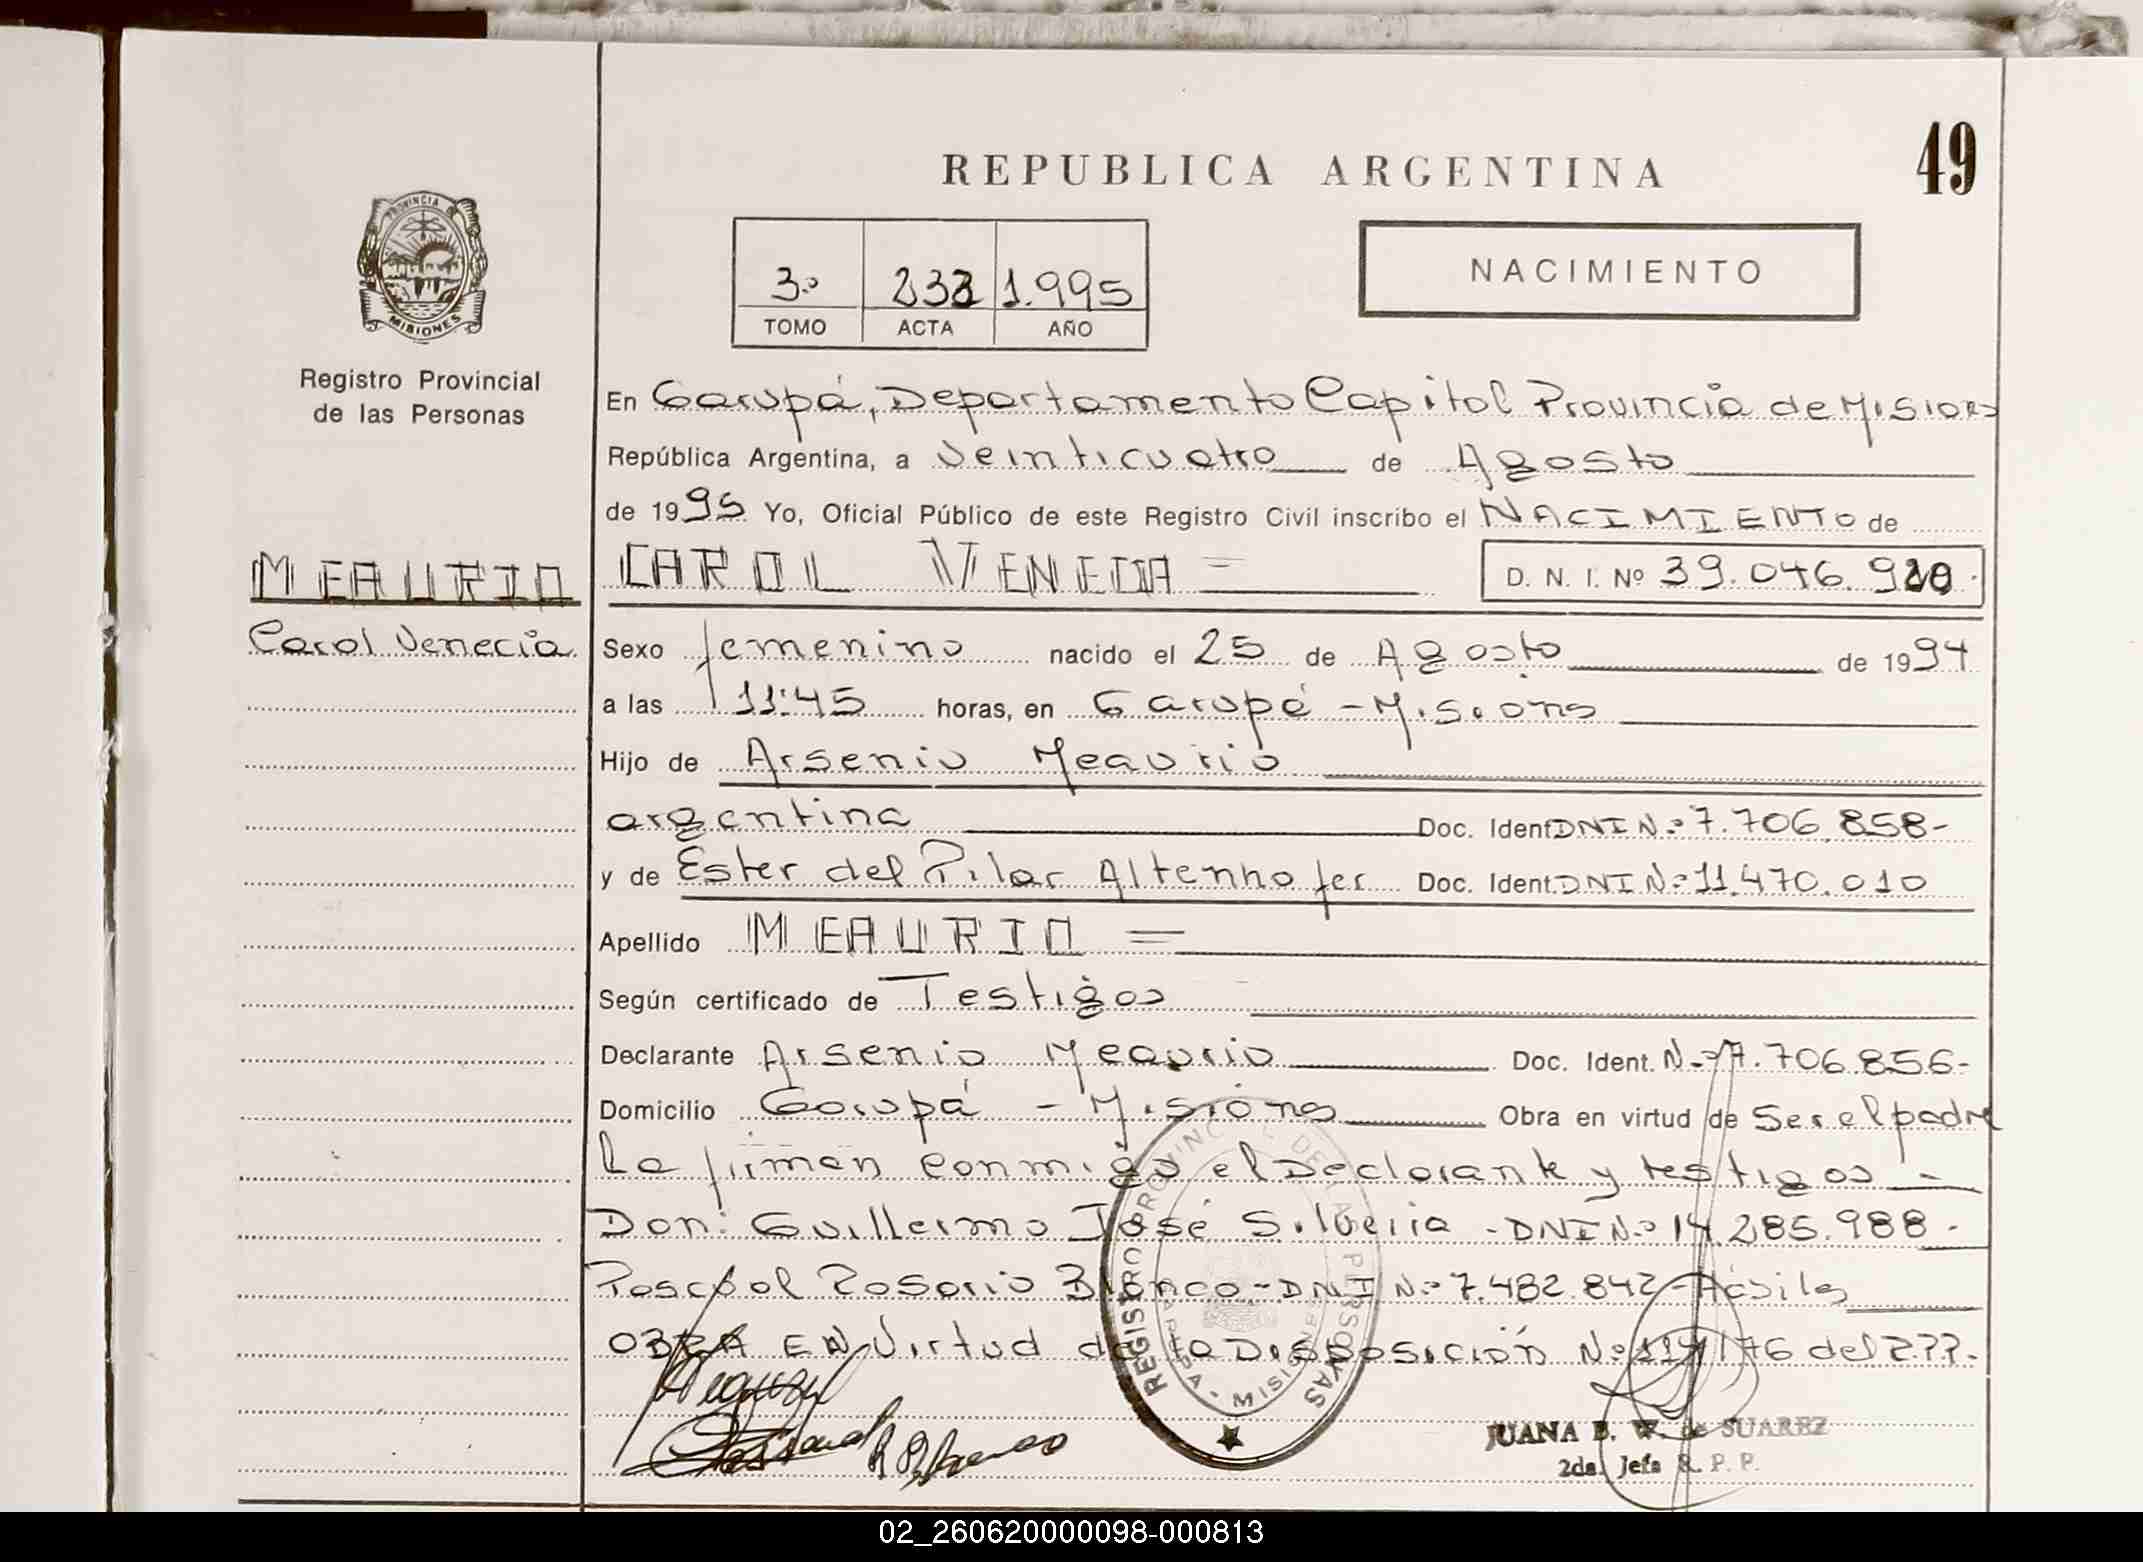 REPUBLICA ARGENTINA
49
PROVINCIA DE
MISIONES
Registro Provincial
de las Personas
3º 232 1.995
TOMO ACTA AÑO
NACIMIENTO
En Garupá, Departamento Capital Provincia de Misiones
República Argentina, a Veinticuatro de Agosto
de 1995 Yo, Oficial Público de este Registro Civil inscribo el NACIMIENTO de
MEAURIO
CAROL VENECIA =
D. N. I. Nº 39.046.9
Carol Venecia
Sexo femenino nacido el 25 de Agosto de 1994
a las 11:45 horas, en Garupá - Misiones
Hijo de Arsenio Meaurio
argentina Doc. Ident DNI Nº 7.706.858-
y de Ester del Pilar Altenhofer Doc. Ident. DNI Nº 11.470.010
Apellido MEAURIO =
Según certificado de Testigos
Declarante Arsenio Meaurio Doc. Ident. Nº 7.706.856-
Domicilio Garupá - Misiones Obra en virtud de Ser el padre
La firman conmigo el Declarante y testigos -
Don: Guillermo José Silveria - DNI Nº 14.285.988 -
Pascual Rosario Blanco - DNI Nº 7.482.842 - Hábiles
OBRA EN Virtud de la Disposición Nº /76 del
REGISTRO PROVINCIAL DE LAS PERSONAS
GARUPA - MISIONES
JUANA B. W. de SUAREZ
2da. Jefa R. P. P.
02_260620000098-000813